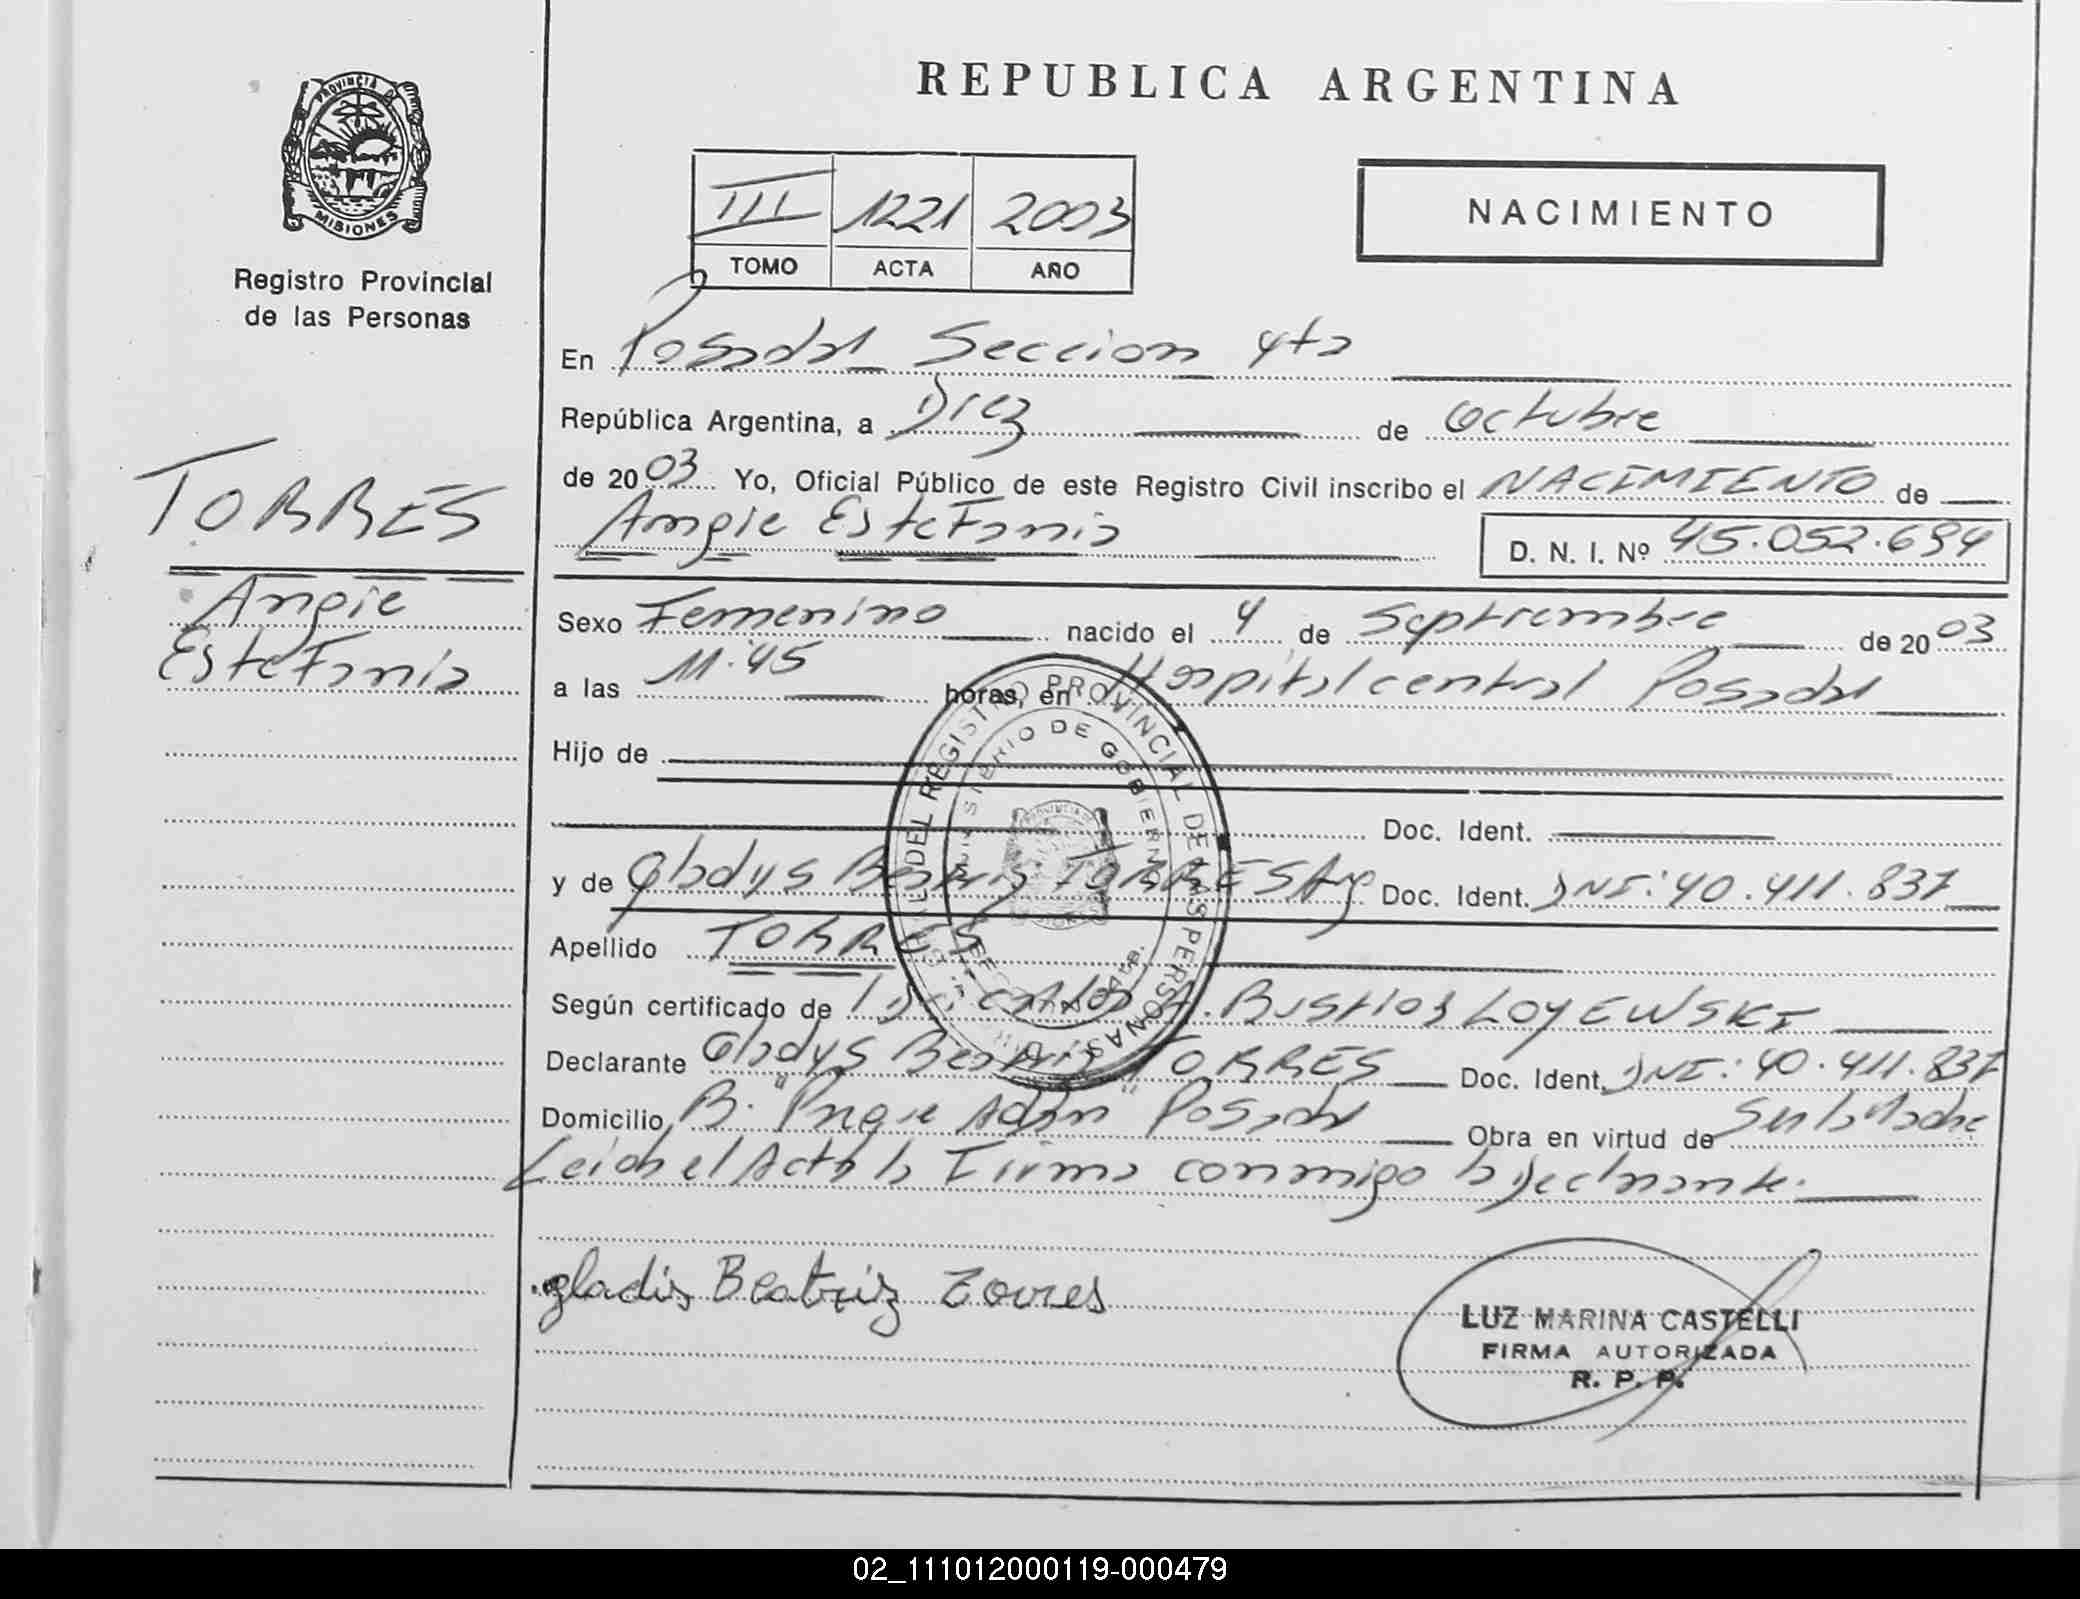 PROVINCIA DE
MISIONES
Registro Provincial
de las Personas
TORRES
Angie
Estefania
REPUBLICA ARGENTINA
III 1221 2003
TOMO ACTA AÑO
NACIMIENTO
En Posadas Seccion 4ta
República Argentina, a Diez de Octubre
de 2003 Yo, Oficial Público de este Registro Civil inscribo el NACIMIENTO de
Angie Estefania D. N. I. Nº 45.052.694
Sexo Femenino nacido el 4 de Septiembre de 2003
a las 11.45 horas, en Hospital central Posadas
Hijo de
Doc. Ident.
y de Gladys Beatriz TORRES Arg Doc. Ident. DNI: 40.411.837
Apellido TORRES
Según certificado de Dr. Carlos A. Bustlos LOYEWSKI
Declarante Gladys Beatriz TORRES Doc. Ident. DNI: 40.411.837
Domicilio B. Adam Posadas Obra en virtud de Ser la Madre
Leida el Acta la Firma conmigo la Declarante.
gladis Beatriz Torres
LUZ MARINA CASTELLI
FIRMA AUTORIZADA
R. P. P.
DEL REGISTRO PROVINCIAL DE LAS PERSONAS
MINISTERIO DE GOBIERNO
02_111012000119-000479